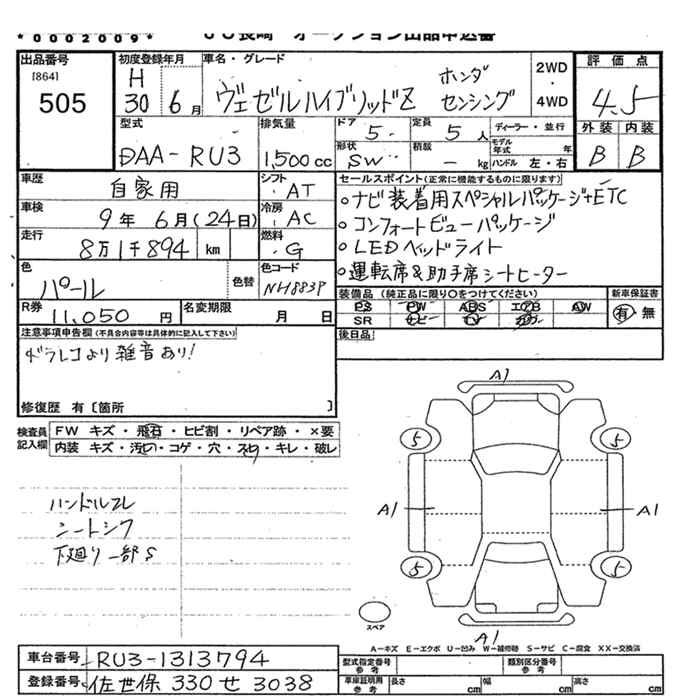 *0002009*
JU長崎 オークション出品申込書
出品番号
[864]
505
初度登録年月
H
30 6月
車名・グレード
ホンダ
ヴェゼルハイブリッドZ センシング
2WD
・
4WD
評価点
4.5
外装 内装
B B
型式
DAA-RU3
排気量
1,500cc
ドア
5
定員
5人
ディーラー・並行
形状
SW
積載
- kg
モデル年式 年
ハンドル 左・右
車歴
自家用
シフト
AT
車検
9年 6月(24日)
冷房
AC
走行
8万1千894 km
燃料
G
色
パール
色替
色コード
NH883P
R券
11,050円
名変期限
月 日
セールスポイント(正常に機能するものに限ります)
○ナビ装着用スペシャルパッケージ+ETC
○コンフォートビューパッケージ
○LEDヘッドライト
○運転席&助手席シートヒーター
装備品(純正品に限り○をつけてください)
PS PW ABS エアB AW
SR ナビ TV
新車保証書
有 無
後日品
注意事項申告欄(不具合内容等は具体的に記入して下さい)
ドラレコより雑音あり!
修復歴 有〔箇所 〕
検査員記入欄
FW キズ・飛石・ヒビ割・リペア跡・×要
内装 キズ・汚れ・コゲ・穴・スレ・キレ・破レ
ハンドルスレ
シートシワ
下廻り一部S
A1
5 5
A1 A1
5 5
スペア
A1
A-キズ E-エクボ U-凹み W-補修跡 S-サビ C-腐食 XX-交換済
車台番号
RU3-1313794
登録番号
佐世保 330 せ 3038
型式指定番号
参考
類別区分番号
参考
車庫証明用
参考
長さ cm
幅 cm
高さ cm